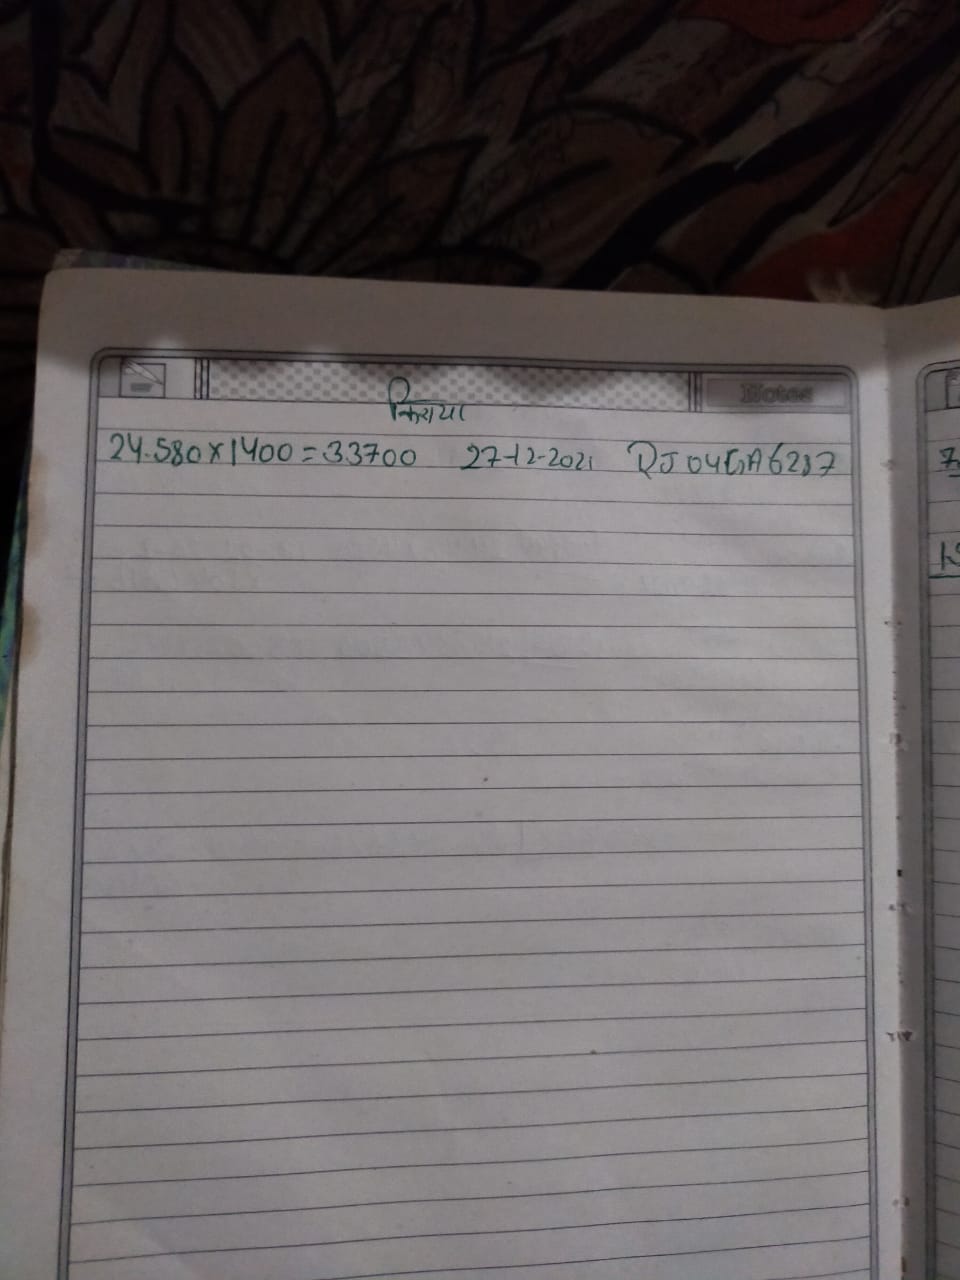 Notes
किराया
24.580x1400=33700 27-12-2021 RJ04GA6287
7